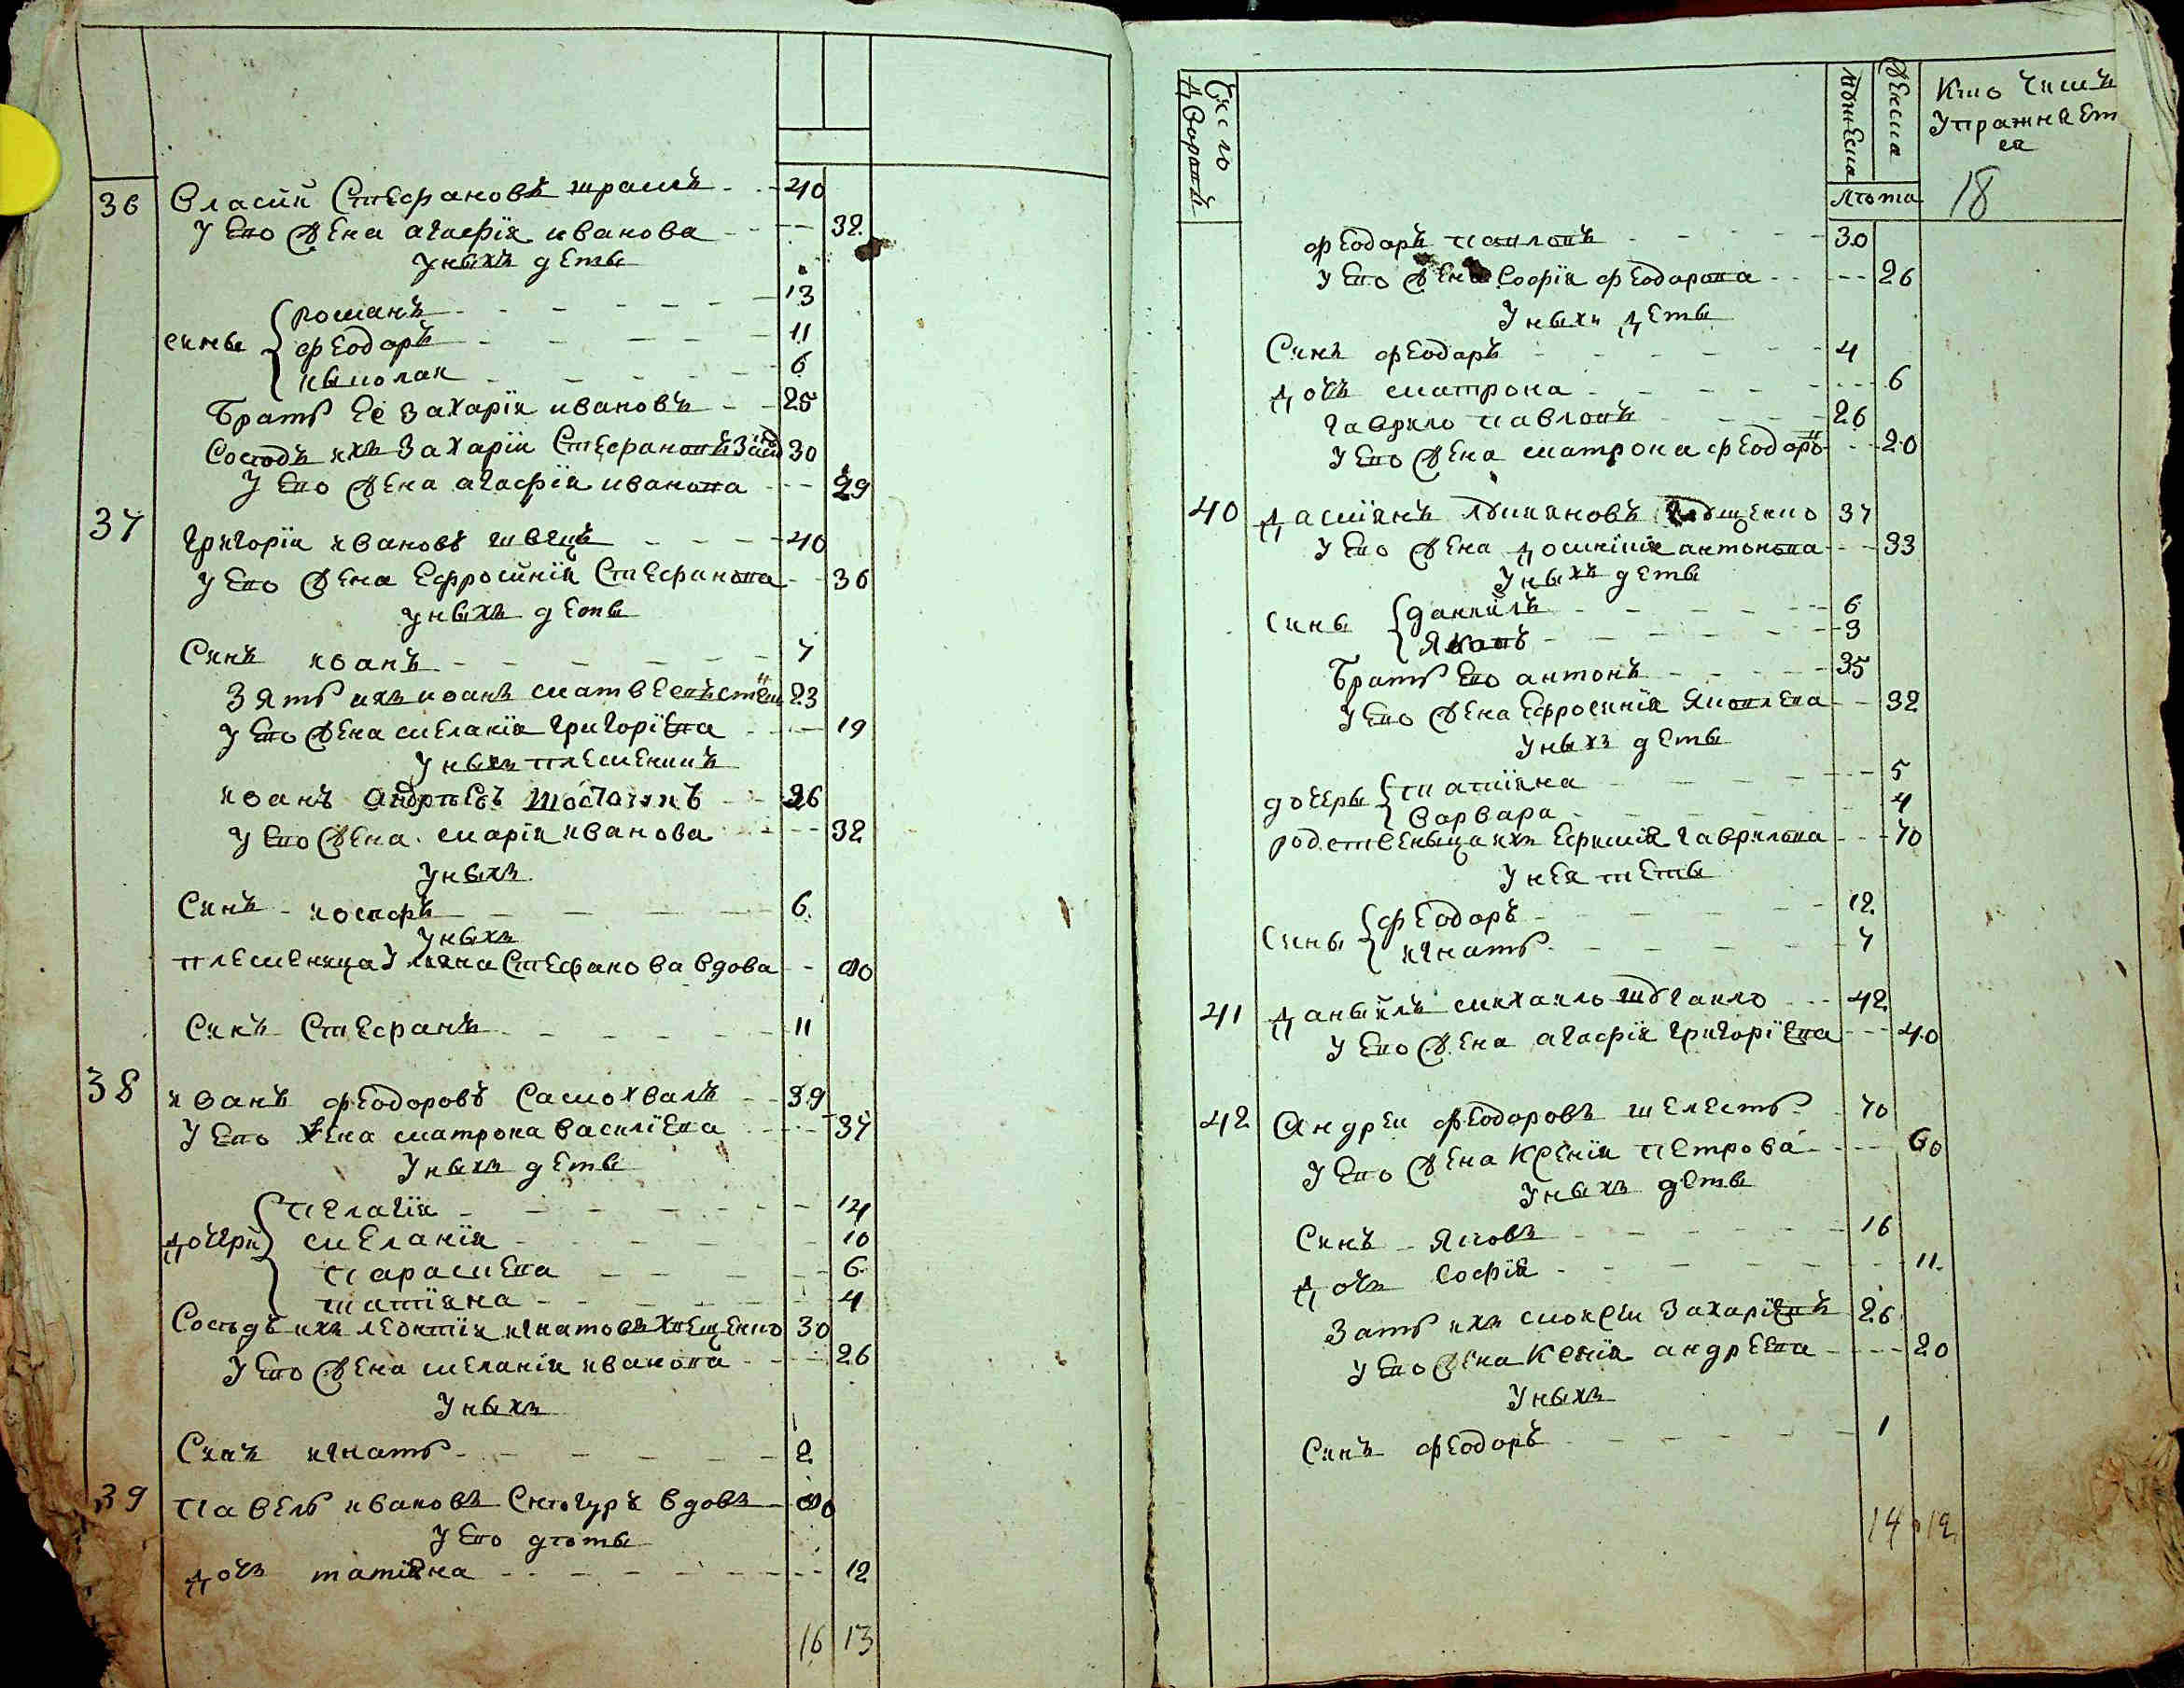 36 Власий Стефановъ шрамъ 40
У Его Жена агафія иванова 32
Уныхъ дети
романъ 13
сины феодоръ 11
николай 6
Братъ Ее Захарія ивановъ 25
Соседъ ихъ Захарій Стефановъ 30
У Его Жена агафія иванова 29
37 григорій ивановъ швецъ 40
У Его Жена Ефросинія Стефанова 36
Уныхъ дети
Синъ иванъ 7
Зять ихъ иванъ матвеевъ 23
У Его Жена меланія григоріева 19
Уныхъ племеникъ
иванъ андреевъ 26
У Его Жена марія иванова 32
Уныхъ
Синъ иосифъ 6
Уныхъ
племеница Уляна Стефанова вдова 40
Синъ Стефанъ 11
38 иванъ феодоровъ Самохвалъ 39
У Его Жена матрона василіева 37
Уныхъ дети
пелагія 14
дочери меланія 10
парасковія 6
татіяна 4
Соседъ ихъ леонтій игнатовъ 30
У Его Жена меланія иванова 26
Уныхъ
Синъ игнатъ 2
39 павелъ ивановъ Снегуръ вдовъ 40
У Его дети
дочь татіяна 12
16 13
Число дворовъ
Мужеска
Женска
Кто чимъ
Упражняет
ся
лета
18
феодоръ павловъ 30
У Его Жена Софія феодорова 26
Уныхъ дети
Синъ феодоръ 4
дочь матрона 6
гаврило павловъ 26
У Его Жена матрона феодоро 20
40 даміянъ лукяновъ 37
У Его Жена домникія антонова 33
Уныхъ дети
Сины данийлъ 6
Яковъ 3
Братъ Его антонъ 35
У Его Жена Ефросинія Яковлева 32
Уныхъ дети
дочеры татіяна 5
варвара 4
родственыца ихъ Ефимія гаврилова 70
У нея дети
Сины феодоръ 12
игнатъ 7
41 даныилъ михаило 42
У Его Жена агафія григоріева 40
42 андрей феодоровъ шелестъ 70
У Его Жена Ксенія петрова 60
Уныхъ дети
Синъ Яковъ 16
дочь Софія 11
Зять ихъ моисей Захаріевъ 26
У Его Жена Ксенія андреева 20
Уныхъ
Синъ феодоръ 1
14 12